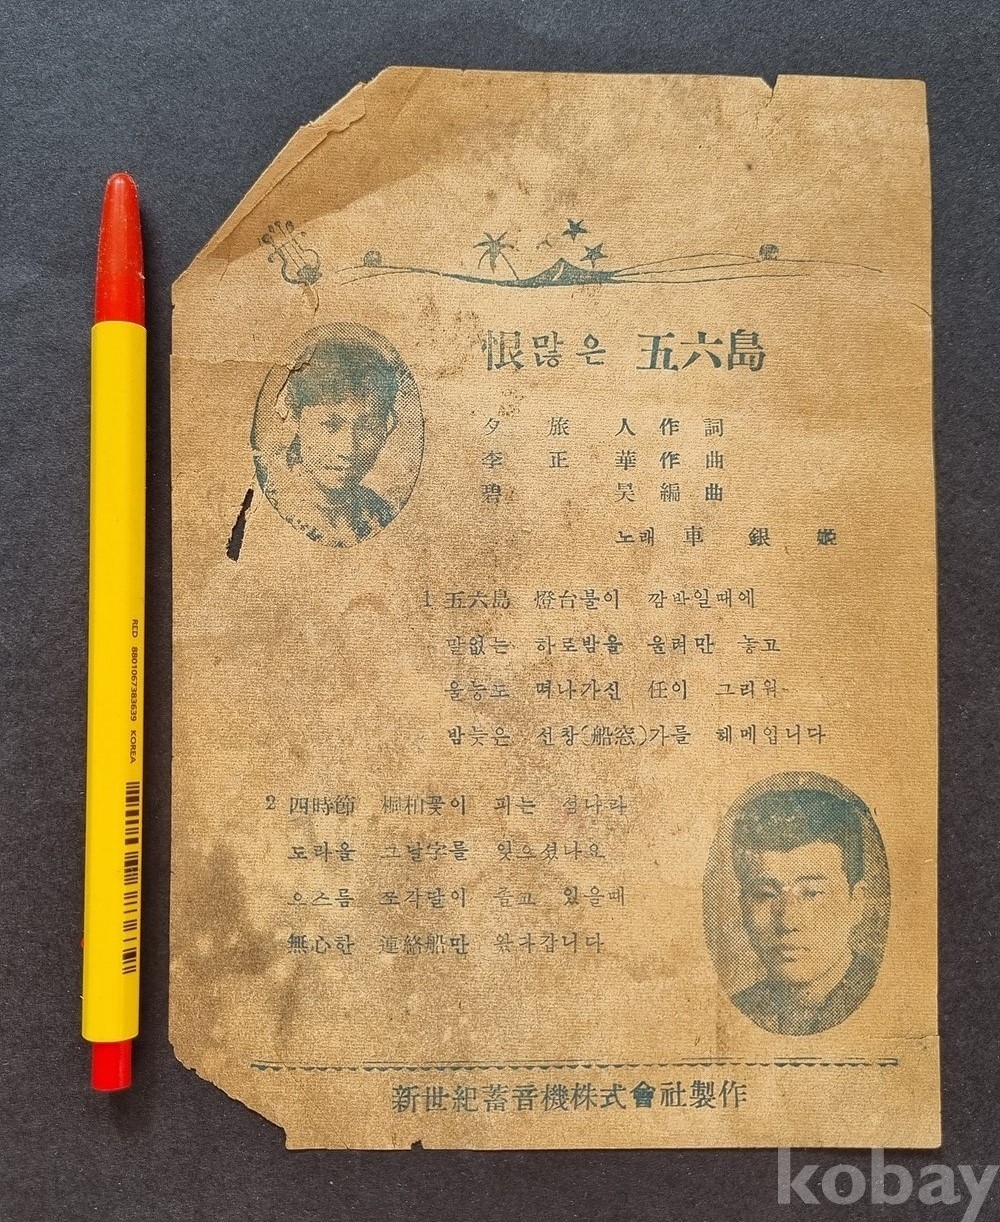 恨많은 五六島
夕旅人作詞
李正華作曲
碧昊編曲
노래 車銀姬
1 五六島 燈台불이 깜박일때에
말없는 하로밤을 울려만 놓고
울능도 떠나가신 任이 그리워
밤늦은 선창(船窓)가를 헤메입니다
2 四時節 柏꽃이 피는 섬나라
도라올 그날字를 잊으셨나요
으스름 쪼각달이 졸고 있을때
無心한 連絡船만 왔다갑니다
新世紀蓄音機株式會社製作
RED 8801067383639 KOREA
kobay